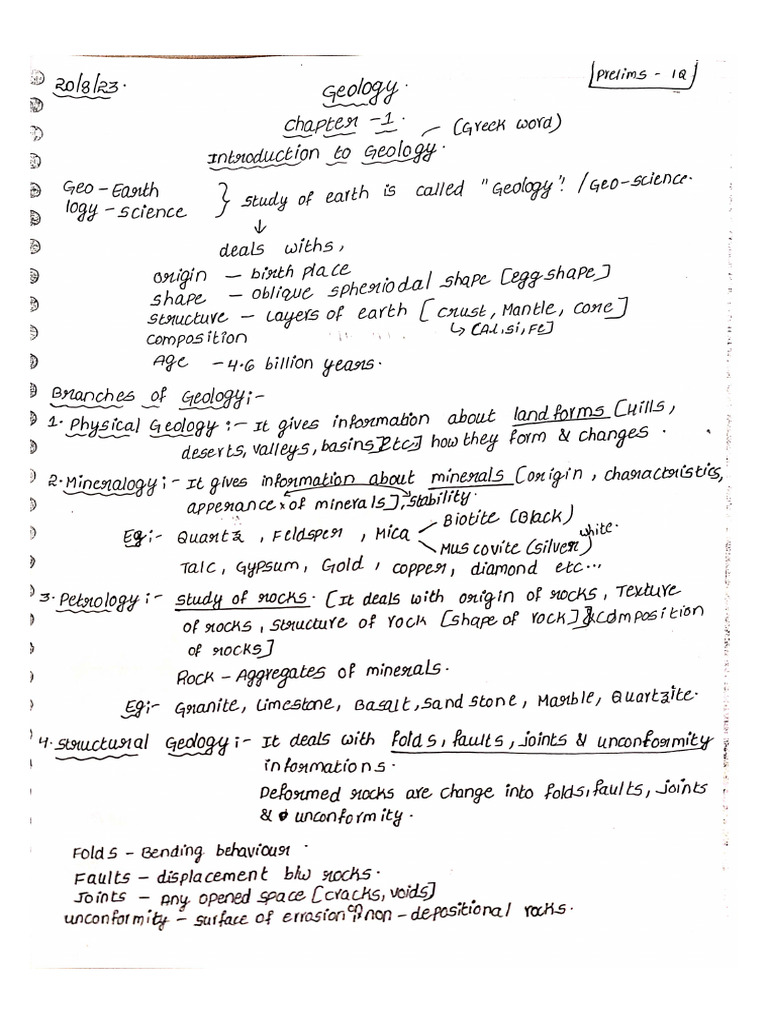 20/8/23.
Prelims - 1Q
Geology.
Chapter -1.
(Greek word)
Introduction to Geology.
Geo - Earth
logy - science
} study of earth is called "Geology"! /Geo-science.
↓
deals withs,
origin - birth place
shape - oblique spheriodal shape [egg shape]
structure - Layers of earth [crust, Mantle, core]
↳ [Al, si, Fe]
composition
Age - 4.6 billion years.
Branches of Geology;-
1. Physical Geology :- It gives information about land forms [Hills,
deserts, valleys, basins, Etc] how they form & changes.
2. Mineralogy ;- It gives information about minerals [origin, characteristics,
apperance of minerals], stability.
Eg:- Quartz, Feldsper, Mica - Biotite (Black)
Muscovite (silver) white.
Talc, Gypsum, Gold, copper, diamond etc...
3. Petrology :- study of rocks. [It deals with origin of rocks, Texture
of rocks, structure of rock [shape of rock] & composition
of rocks]
Rock - Aggregates of minerals.
Eg:- Granite, Limestone, Basalt, Sand stone, Marble, Quartzite.
4. Structural Geology ;- It deals with folds, faults, joints & unconformity
informations.
Deformed rocks are change into folds, faults, joints
& unconformity.
Folds - Bending behaviour
Faults - displacement b/w rocks.
Joints - Any opened space [cracks, voids]
unconformity - surface of errosion on non-depositional rocks.